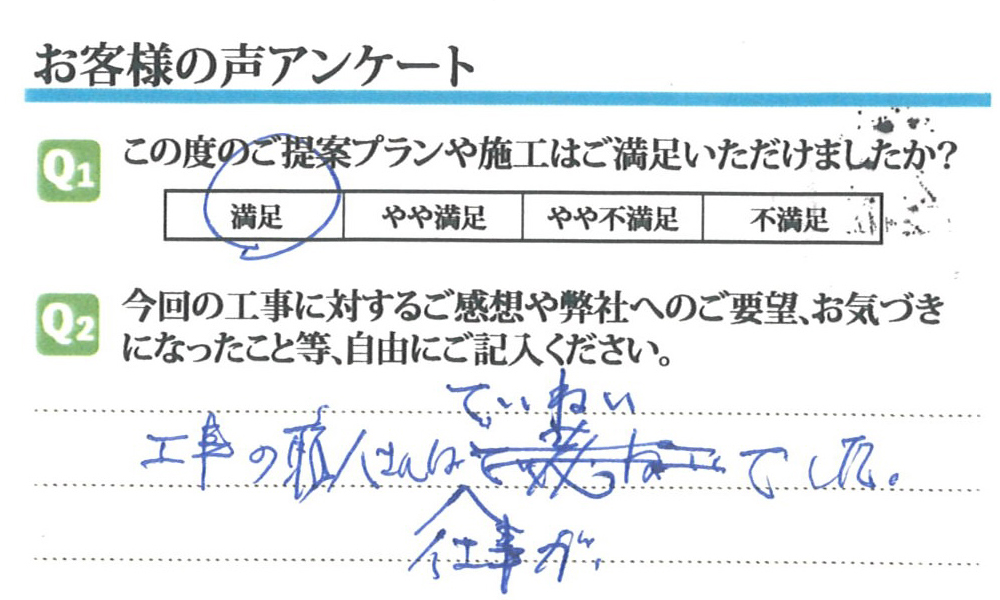 お客様の声アンケート
Q1 この度のご提案プランや施工はご満足いただけましたか?
満足 やや満足 やや不満足 不満足
Q2 今回の工事に対するご感想や弊社へのご要望、お気づき
になったこと等、自由にご記入ください。
ていねい
工事の職人さんは でした。
仕事が